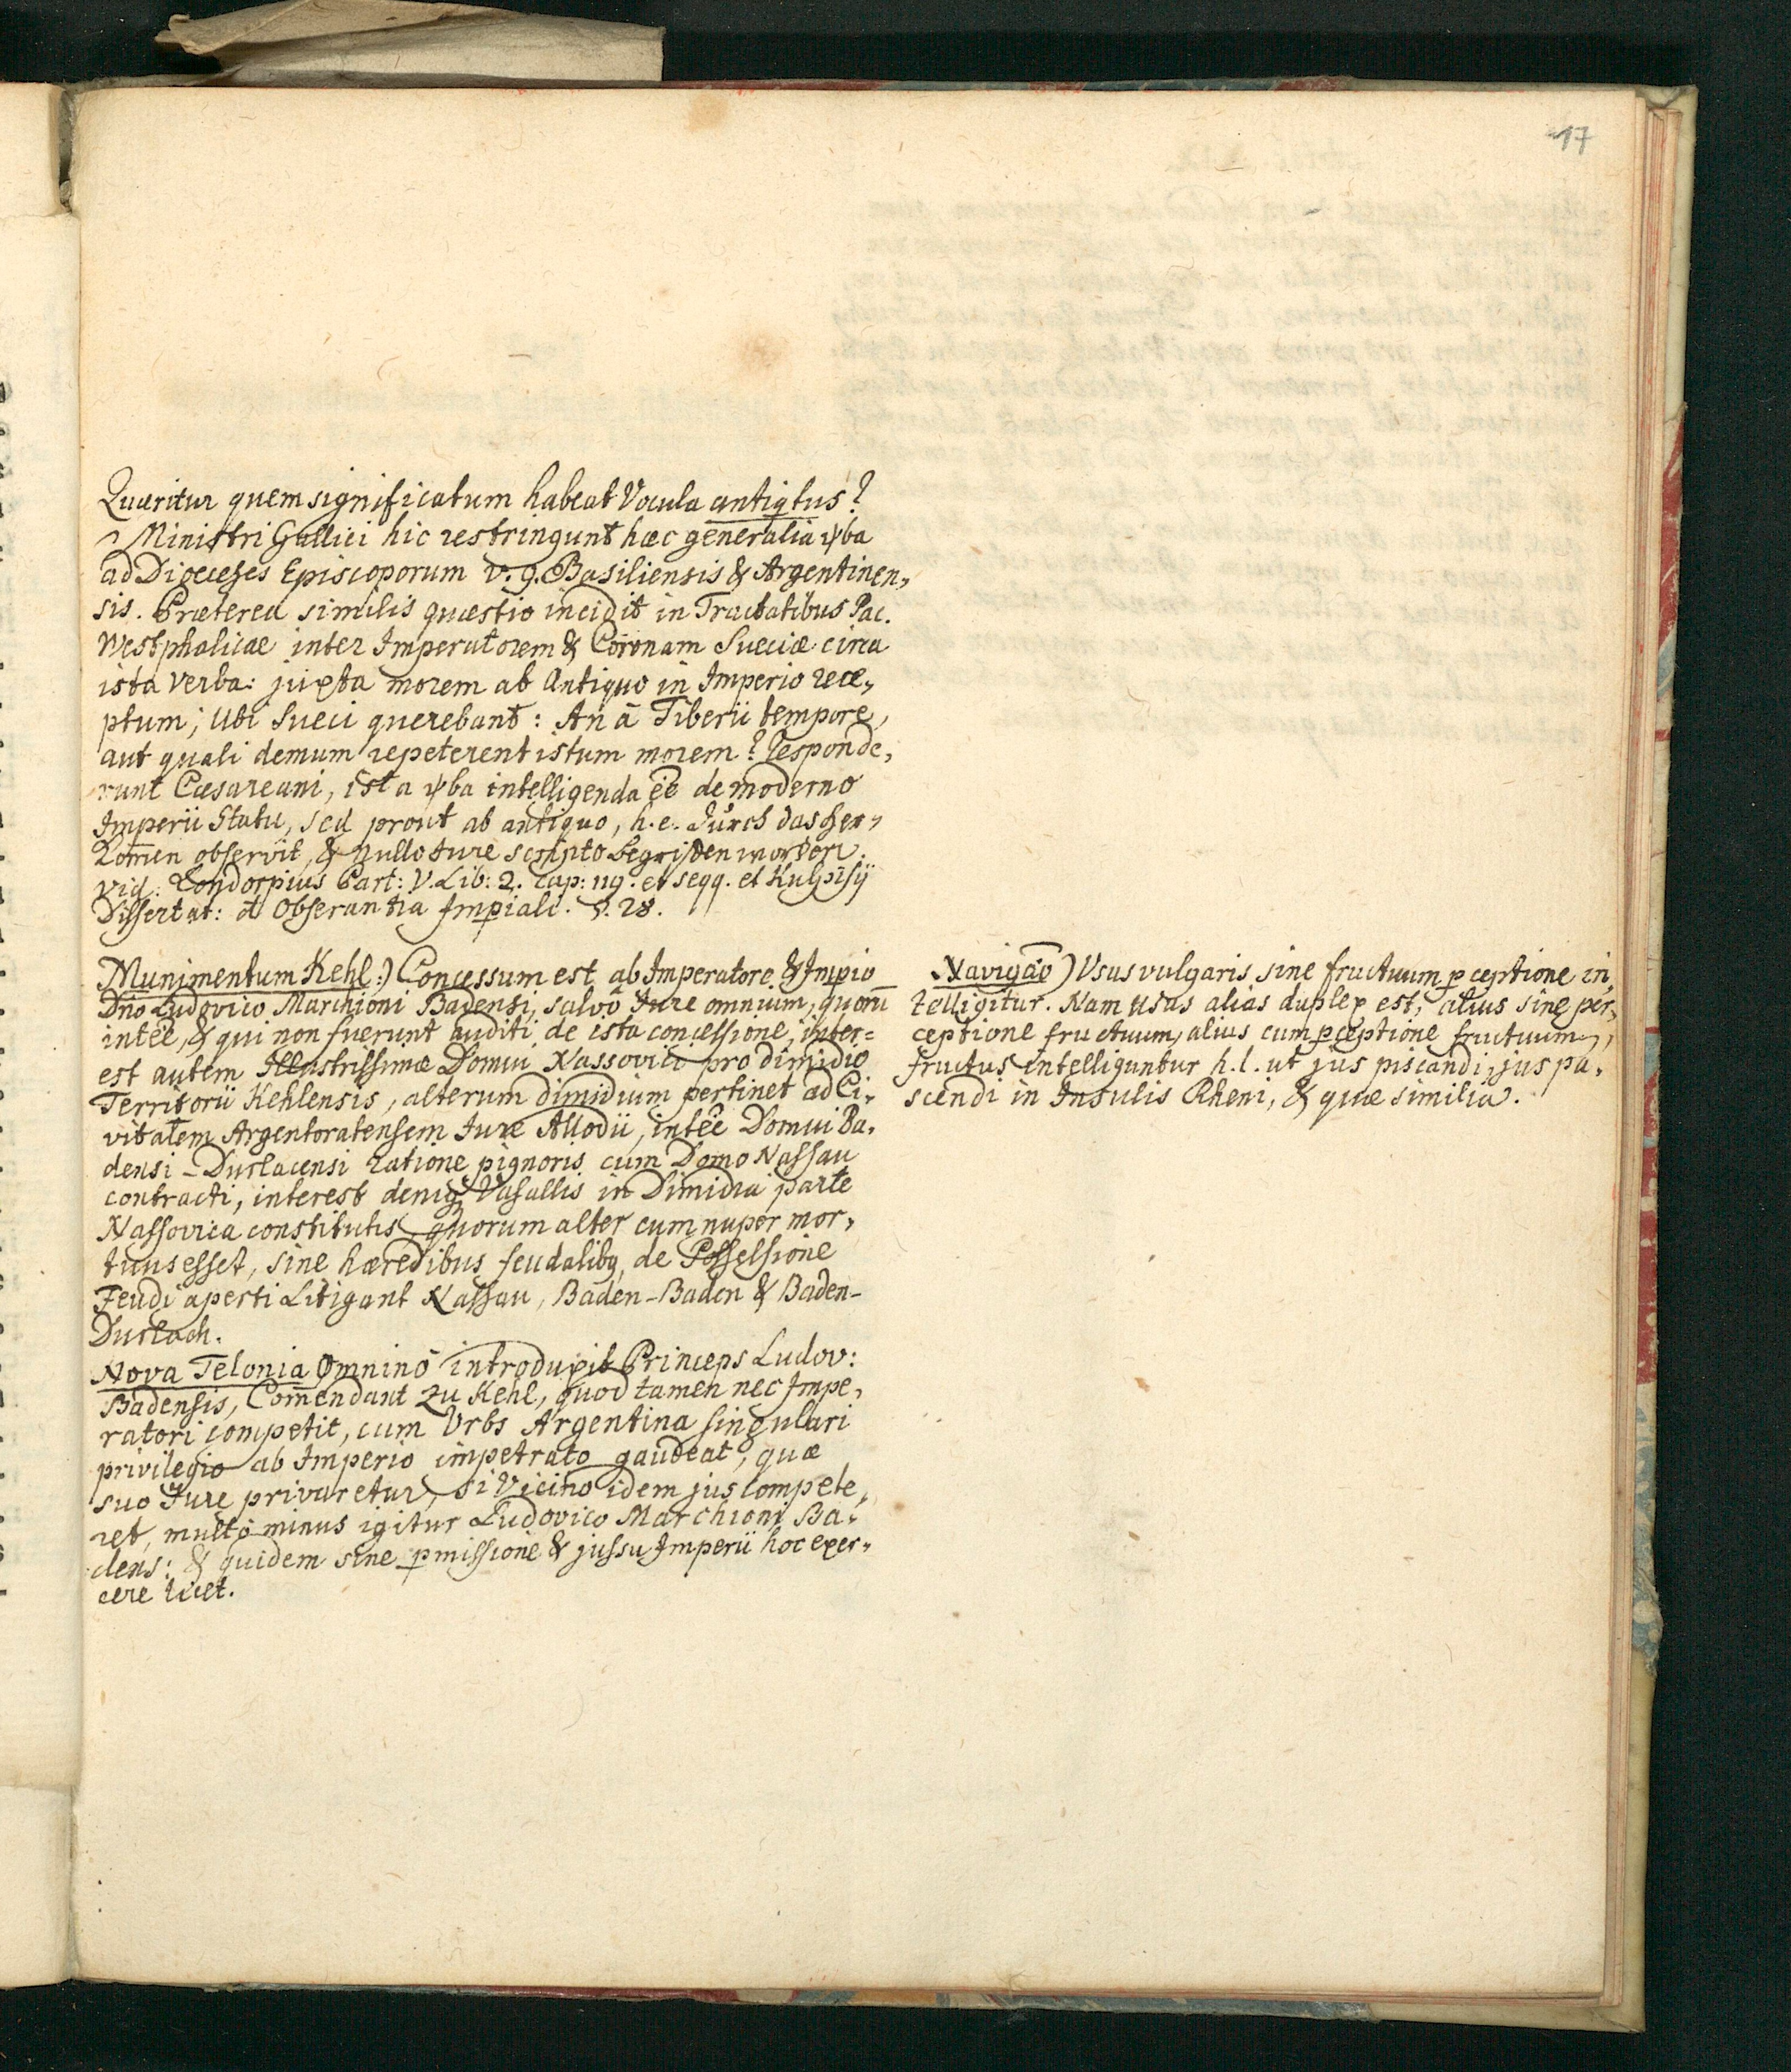 17
Quæritur quem significatum habeat Vocula antiqtus?
Ministri Gallici hic restringunt hæc generalia ꝟba
ad Dioeceses Episcoporum v. g. Basiliensis & Argentinen„
sis. Præterea similis quæstio incidit in Tractatibus Pac.
Westphalicae inter Imperatorem & Coronam Sueciæ circa
ista verba: juxta morem ab Antiquo in Imperio rece„
ptum; Ubi Sueci querebant: An â Tiberii tempore,
aut quali demum repeterent istum morem? Responde„
runt Cæsareani, ista ꝟba intelligenda ēē de moderno
Imperii Statu, sed prout ab antiquo, h. e. durch das her„
kom̄en observirt, & nullo iure scripto begriffen worden.
vid. Londorpius Part: V. Lib: 2. cap: 119. et seqq. et Kulpisij
Dissertat: d Observantia Impiali. §. 28.
Munimentum Kehl:) Concessum est ab Imperatore & Impio
Dno Ludovico Marchioni Badensi, salvo Iure omnium, quorū
intēē, & qui non fuerunt auditi de ista concessione, inter=
est autem Illustrissimæ Domui Nassovicæ pro dimidio
Territorii Kehlensis, alterum dimidium pertinet ad Ci„
vitatem Argentoratensem Iure Allodii, intēē Domui Ba„
densi-Durlacensi ratione pignoris cum Domo Nassau
contracti, interest deniq; Vasallis in Dimidia parte
Nassovica constitutis quorum alter cum nuper mor„
tuus esset, sine hæredibus feudalibq, de Possessione
Feudi aperti Litigant Nassau, Baden-Baden & Baden-
Durlach.
Nova Telonia Omninô introduxit Princeps Ludov:
Badensis, Com̄endant zu Kehl, quod tamen nec Impe„
ratori competit, cum Urbs Argentina singulari
privilegio ab Imperio impetrato gaudeat, quæ
suo Iure privaretur, si Vicino idem jus compete„
ret, multô minus igitur Ludovico Marchioni Ba„
dens: & quidem sine pmissione & jussu Imperii hoc exer„
cere licet.
Navigaō) Usus vulgaris sine fructuum pceptione in„
telligitur. Nam usus alias duplex est, alius sine per„
ceptione fructuum, alius cum pceptione fructuum,
fructus intelliguntur h. l. ut jus piscandi, jus pa„
scendi in Insulis Rheni, & quæ similia.